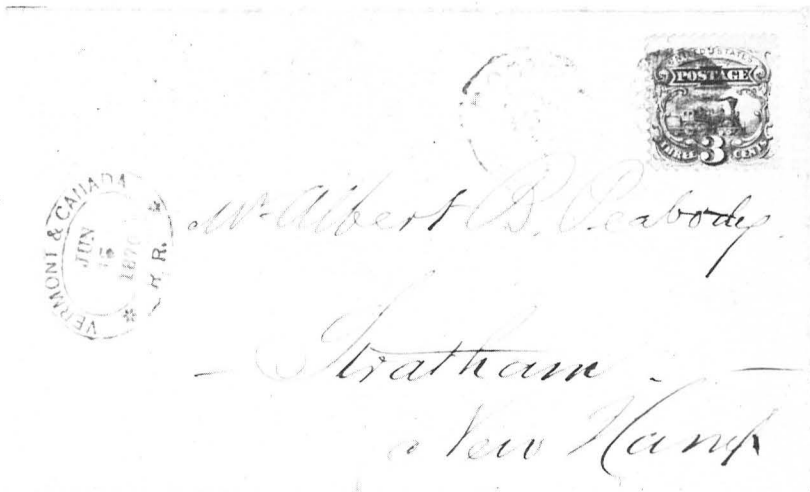 UNITED STATES
POSTAGE
THREE 3 CENTS
VERMONT & CANADA * R. R. *
JUN
1870
Mr. Albert B. Peabody.
- Stratham. -
New Hamp